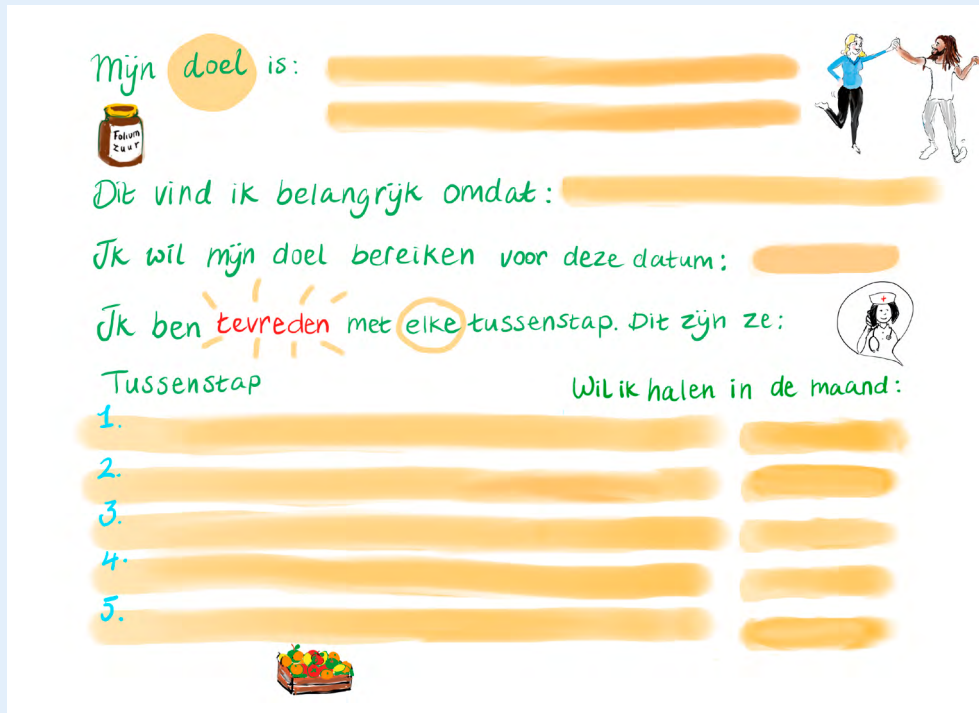 Mijn doel is:
Folium
zuur
Dit vind ik belangrijk omdat:
Ik wil mijn doel bereiken voor deze datum:
Ik ben tevreden met elke tussenstap. Dit zijn ze:
Tussenstap Wil ik halen in de maand:
1.
2.
3.
4.
5.